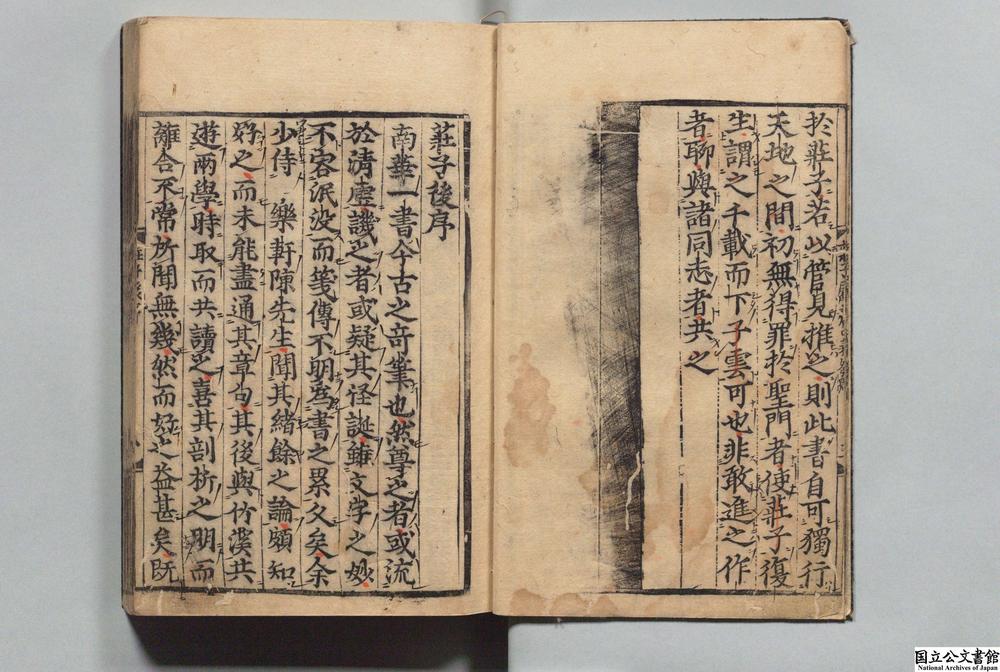 扵莊子若以管見推之則此書自可獨行
天地之間初無得罪扵聖門者使莊子復
生謂之千載而下子雲可也非敢進之作
者聊與諸同志者共之
莊子後序
南華一書今古之奇筆也然尊之者或流
於清虛譏之者或疑其怪誕雖文字之妙
不容泯没而箋傳不明爲書之累久矣余
少侍 樂軒陳先生聞其緒餘之論頗知
好之而未能盡通其章句其後與竹溪共
遊兩學時取而共讀之喜其剖析之明而
離合不常所聞無幾然而好之益甚矣既
国立公文書館
National Archives of Japan